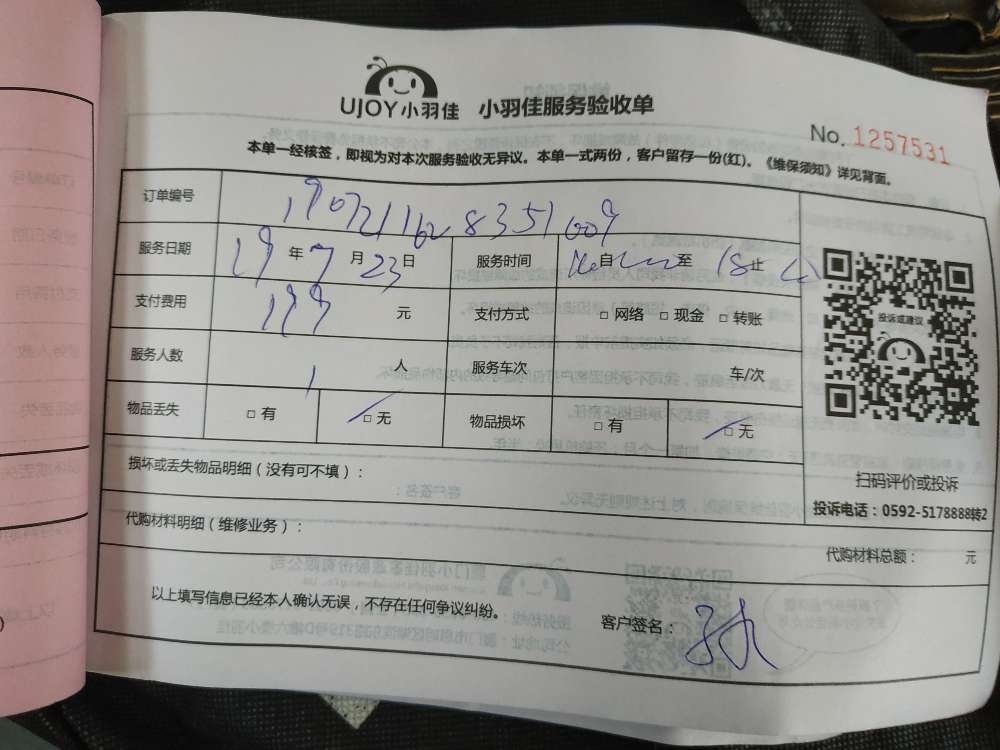 UJOY小羽佳 小羽佳服务验收单
No. 1257531
本单一经核签，即视为对本次服务验收无异议。本单一式两份，客户留存一份(红)。《维保须知》详见背面。
订单编号 1907211628351609
服务日期 19年7月23日 服务时间 自 至 18止
支付费用 199 元 支付方式 □ 网络 □ 现金 □ 转账
服务人数 1 人 服务车次 车/次
物品丢失 □ 有 □ 无 物品损坏 □ 有 □ 无
投诉或建议
扫码评价或投诉
投诉电话：0592-5178888转2
损坏或丢失物品明细（没有可不填）：
代购材料明细（维修业务）：
代购材料总额： 元
以上填写信息已经本人确认无误，不存在任何争议纠纷。
客户签名：